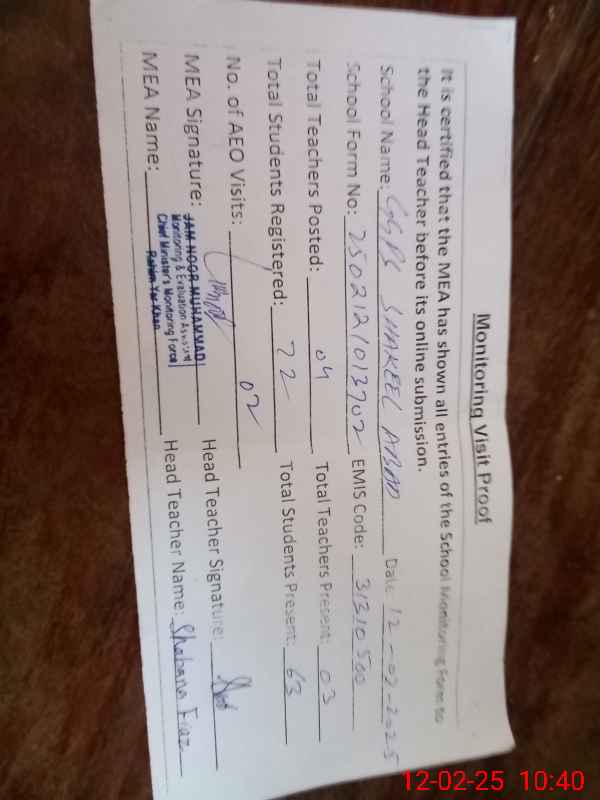 Monitoring Visit Proof
It is certified that the MEA has shown all entries of the School Monitoring Form to
the Head Teacher before its online submission.
School Name: GGPS SHAKEEL ABAD Date 12-02-2025
School Form No: 250212101370 2 EMIS Code: 31310500
Total Teachers Posted: 04 Total Teachers Present: 03
Total Students Registered: 72 Total Students Present: 63
No. of AEO Visits: 02
MEA Signature: Head Teacher Signature:
JAM NOOR MUHAMMAD
Monitoring & Evaluation Assistant
Chief Minister's Monitoring Force
Rahim Yar Khan
MEA Name: Head Teacher Name: Shabana Fiaz
12-02-25 10:40